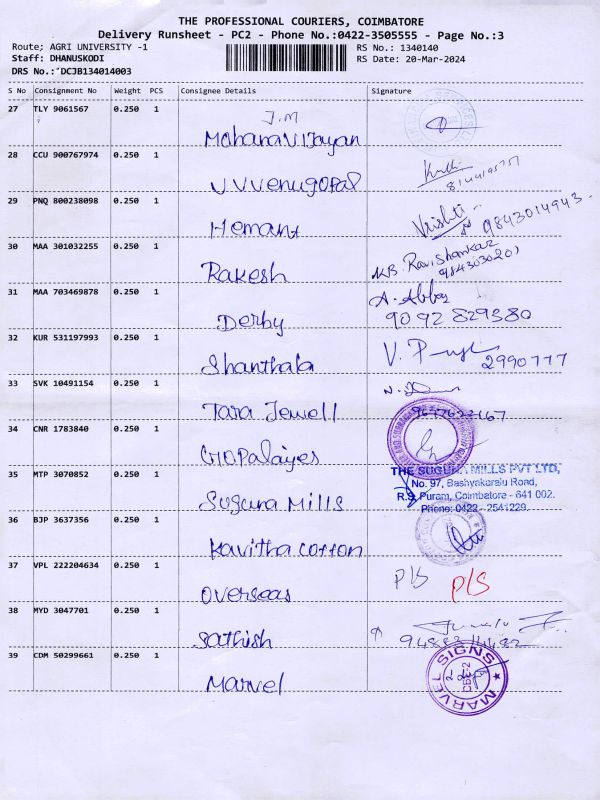 THE PROFESSIONAL COURIERS, COIMBATORE
Delivery Runsheet - PC2 - Phone No.:0422-3505555 - Page No.:3
Route; AGRI UNIVERSITY -1
RS No.: 1340140
Staff: DHANUSKODI
RS Date: 20-Mar-2024
DRS No.: DCJB134014003
S No Consignment No Weight PCS Consignee Details Signature
27 TLY 9061567 0.250 1
J.M
Mohanavijayan
28 CCU 900767974 0.250 1
V V Venugopal
29 PNQ 800238098 0.250 1
Hemant
9843014943
30 MAA 301032255 0.250 1
Rakesh
K.B. Ravishankar
31 MAA 703469878 0.250 1
Derby
A. Abbas
9092 829380
32 KUR 531197993 0.250 1
Shanthala
2990777
33 SVK 10491154 0.250 1
Tara Jewell
34 CNR 1783840 0.250 1
35 MTP 3070852 0.250 1
Suguna Mills
THE SUGUNA MILLS PVT LTD,
No. 97, Bashyakaralu Road,
R.S. Puram, Coimbatore - 641 002.
Phone: 0422 - 2541229.
36 BJP 3637356 0.250 1
Kavitha cotton
37 VPL 222204634 0.250 1
Overseas
P/S P/S
38 MYD 3047701 0.250 1
Sathish
39 CDM 50299661 0.250 1
Marvel
MARVEL SIGNS
CBE-2